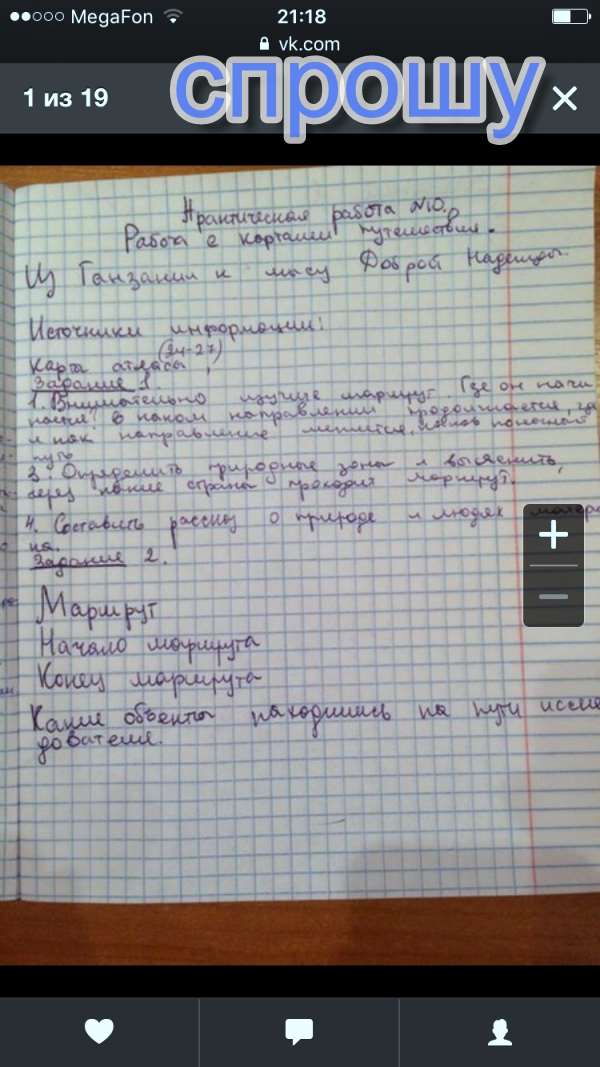 MegaFon 21:18
vk.com
1 из 19
спрошу
Практическая работа №10.
Работа с картами путешествия.
Из Танзании к мысу Доброй Надежды.
Источники информации:
Карты атласа (24-27),
Задание 1.
1. Внимательно изучите маршрут. Где он начи
нается? В каком направлении продолжается, где
и как направление меняется,
путь
3. Определить природные зоны и выяснить,
через какие страны проходит маршрут.
4. Составить рассказ о природе и людях матери
ка.
Задание 2.
Маршрут
Начало маршрута
Конец маршрута
Какие объекты находились на пути иссле
дователя.